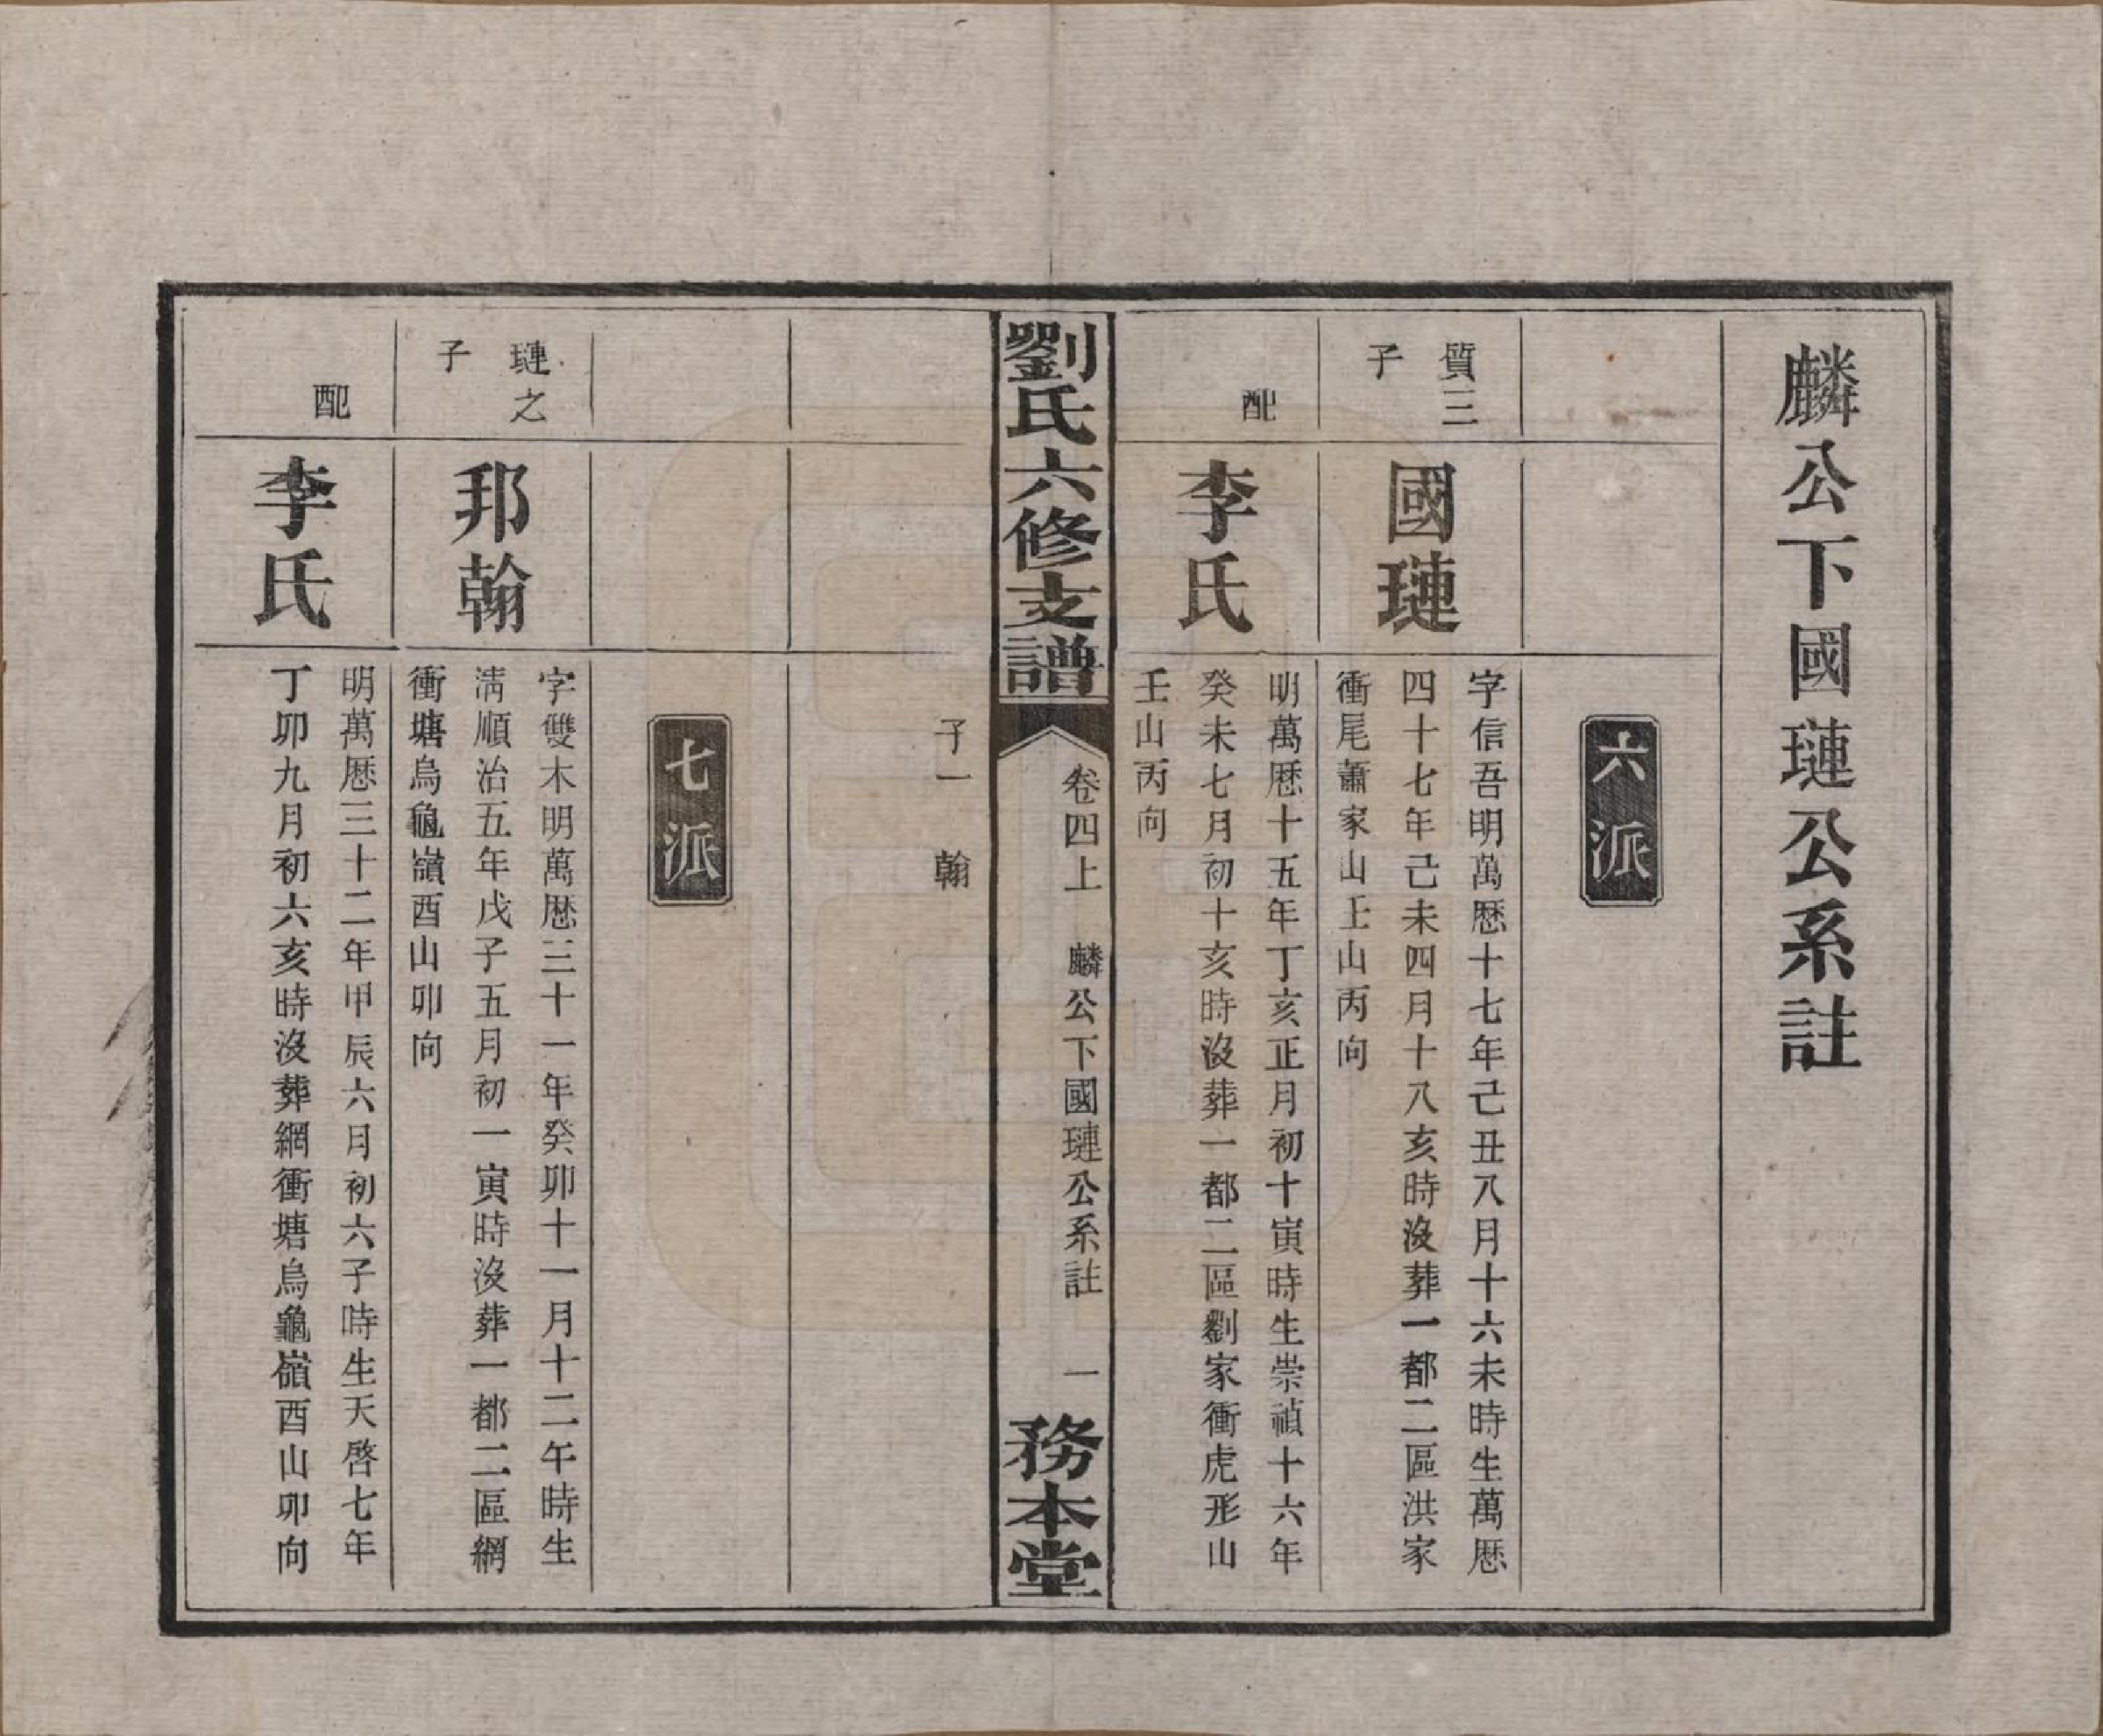 麟公下國璉公系註
六派
質三
子
國璉
字信吾明萬歷十七年己丑八月十六未時生萬歷
四十七年己未四月十八亥時沒葬一都二區洪家
衝尾蕭家山壬山丙向
配
李氏
明萬歷十五年丁亥正月初十寅時生崇禎十六年
癸未七月初十亥時沒葬一都二區劉家衝虎形山
壬山丙向
劉氏六修支譜
卷四上 麟公下國璉公系註 一
務本堂
子一 翰
七派
璉之
子
邦翰
字雙木明萬歷三十一年癸卯十一月十二午時生
淸順治五年戊子五月初一寅時沒葬一都二區網
衝塘烏龜嶺酉山卯向
配
李氏
明萬歷三十二年甲辰六月初六子時生天啓七年
丁卯九月初六亥時沒葬網衝塘烏龜嶺酉山卯向